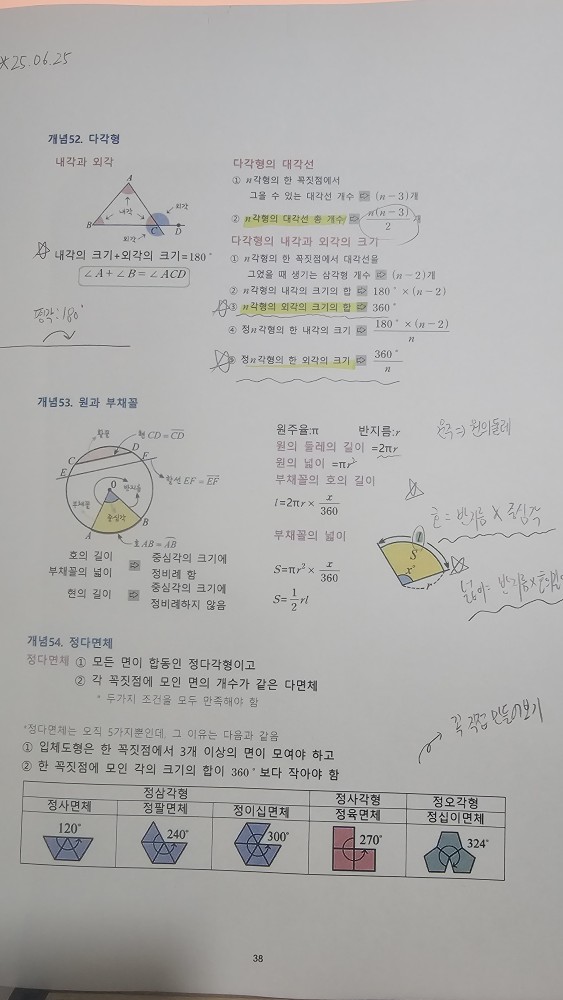 *25.06.25
개념52. 다각형
내각과 외각
A
내각
외각
B
C
D
외각
내각의 크기+외각의 크기=180°
∠A+∠B=∠ACD
평각:180°
다각형의 대각선
① n각형의 한 꼭짓점에서
그을 수 있는 대각선 개수 ⇨ (n-3)개
② n각형의 대각선 총 개수 ⇨ n(n-3)/2 개
다각형의 내각과 외각의 크기
① n각형의 한 꼭짓점에서 대각선을
그었을 때 생기는 삼각형 개수 ⇨ (n-2)개
② n각형의 내각의 크기의 합 ⇨ 180°×(n-2)
③ n각형의 외각의 크기의 합 ⇨ 360°
④ 정n각형의 한 내각의 크기 ⇨ 180°×(n-2)/n
⑤ 정n각형의 한 외각의 크기 ⇨ 360°/n
개념53. 원과 부채꼴
활꼴
현 CD=CD
C
D
E
F
할선 EF=EF
O
반지름
부채꼴
중심각
A
B
호 AB=AB
호의 길이
부채꼴의 넓이
⇨ 중심각의 크기에
정비례 함
현의 길이 ⇨ 중심각의 크기에
정비례하지 않음
원주율:π 반지름:r
원주⇒원의둘레
원의 둘레의 길이 =2πr
원의 넓이 =πr²
부채꼴의 호의 길이
l=2πr× x/360
호=반지름×중심각
부채꼴의 넓이
S=πr²× x/360
S=1/2 rl
l
S
x°
r
넓이=반지름×
개념54. 정다면체
정다면체 ① 모든 면이 합동인 정다각형이고
② 각 꼭짓점에 모인 면의 개수가 같은 다면체
* 두가지 조건을 모두 만족해야 함
꼭 직접 만들어보기
*정다면체는 오직 5가지뿐인데, 그 이유는 다음과 같음
① 입체도형은 한 꼭짓점에서 3개 이상의 면이 모여야 하고
② 한 꼭짓점에 모인 각의 크기의 합이 360°보다 작아야 함
정삼각형 정사각형 정오각형
정사면체 정팔면체 정이십면체 정육면체 정십이면체
120° 240° 300° 270° 324°
38